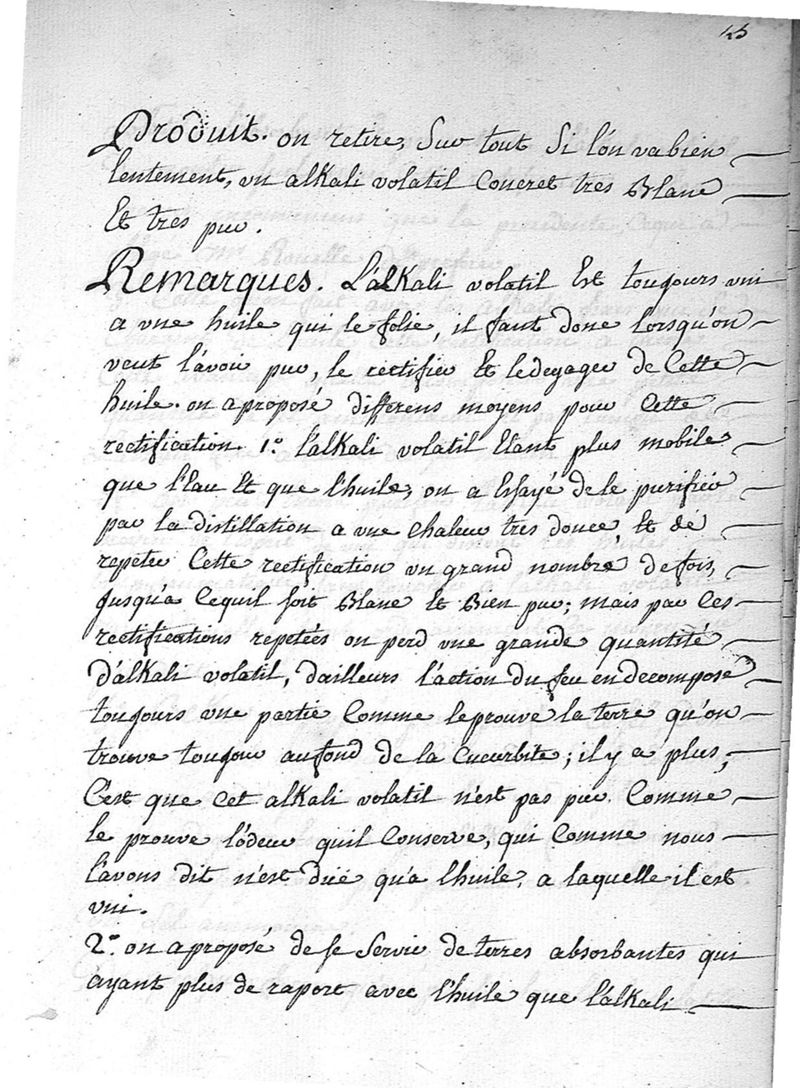 45
Produit. on retire, Sur tout Si l'on va bien
lentement, un alkali volatil Concret tres Blanc
Et tres pur.
Remarques. L'alkali volatil Est toujours uni
a une huile qui le folie, il faut donc lorsqu'on
veut l'avoir pur, le rectifier Et le degager de Cette
huile. on a proposé differens moyens pour Cette
rectification. 1.° l'alkali volatil Etant plus mobile
que l'Eau Et que l'huile, on a Essayé de le purifier
par la distillation a une chaleur tres douce, Et de
repeter Cette rectification un grand nombre de fois,
Jusqu'a Cequil soit Blanc Et Bien pur; mais par Ces
rectifications repetées on perd une grande quantité
D'alkali volatil, dailleurs l'action du feu en decompose
toujours une partie Comme le prouve la terre qu'on
trouve toujour au fond de la Cucurbite; il y a plus,
C'est que Cet alkali volatil n'est pas pur. Comme
le prouve l'odeur quil Conserve, qui Comme nous
l'avons dit n'est düe qu'a l'huile, a laquelle il est
uni.
2.° on a proposé de se Servir de terres absorbantes qui
ayant plus de raport avec l'huile que l'alkali